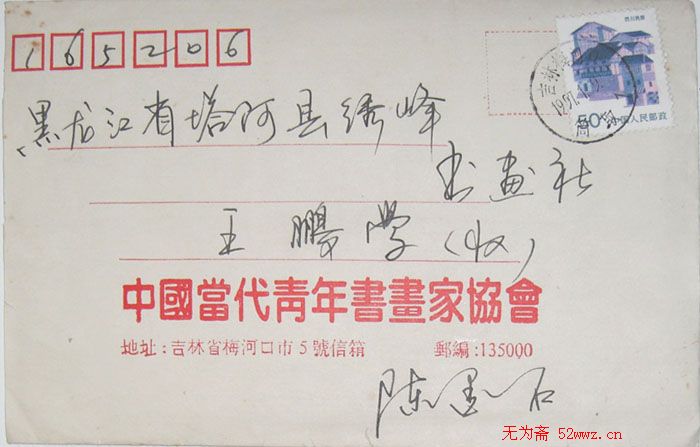 165206
四川民居
50
中国人民邮政
吉林
1997
黑龙江省塔河县绣峰
书画社
王鹏学(收)
中國當代青年書畫家協會
地址:吉林省梅河口市5號信箱 郵編:135000
陈墨石
无为斋 52wwz.cn